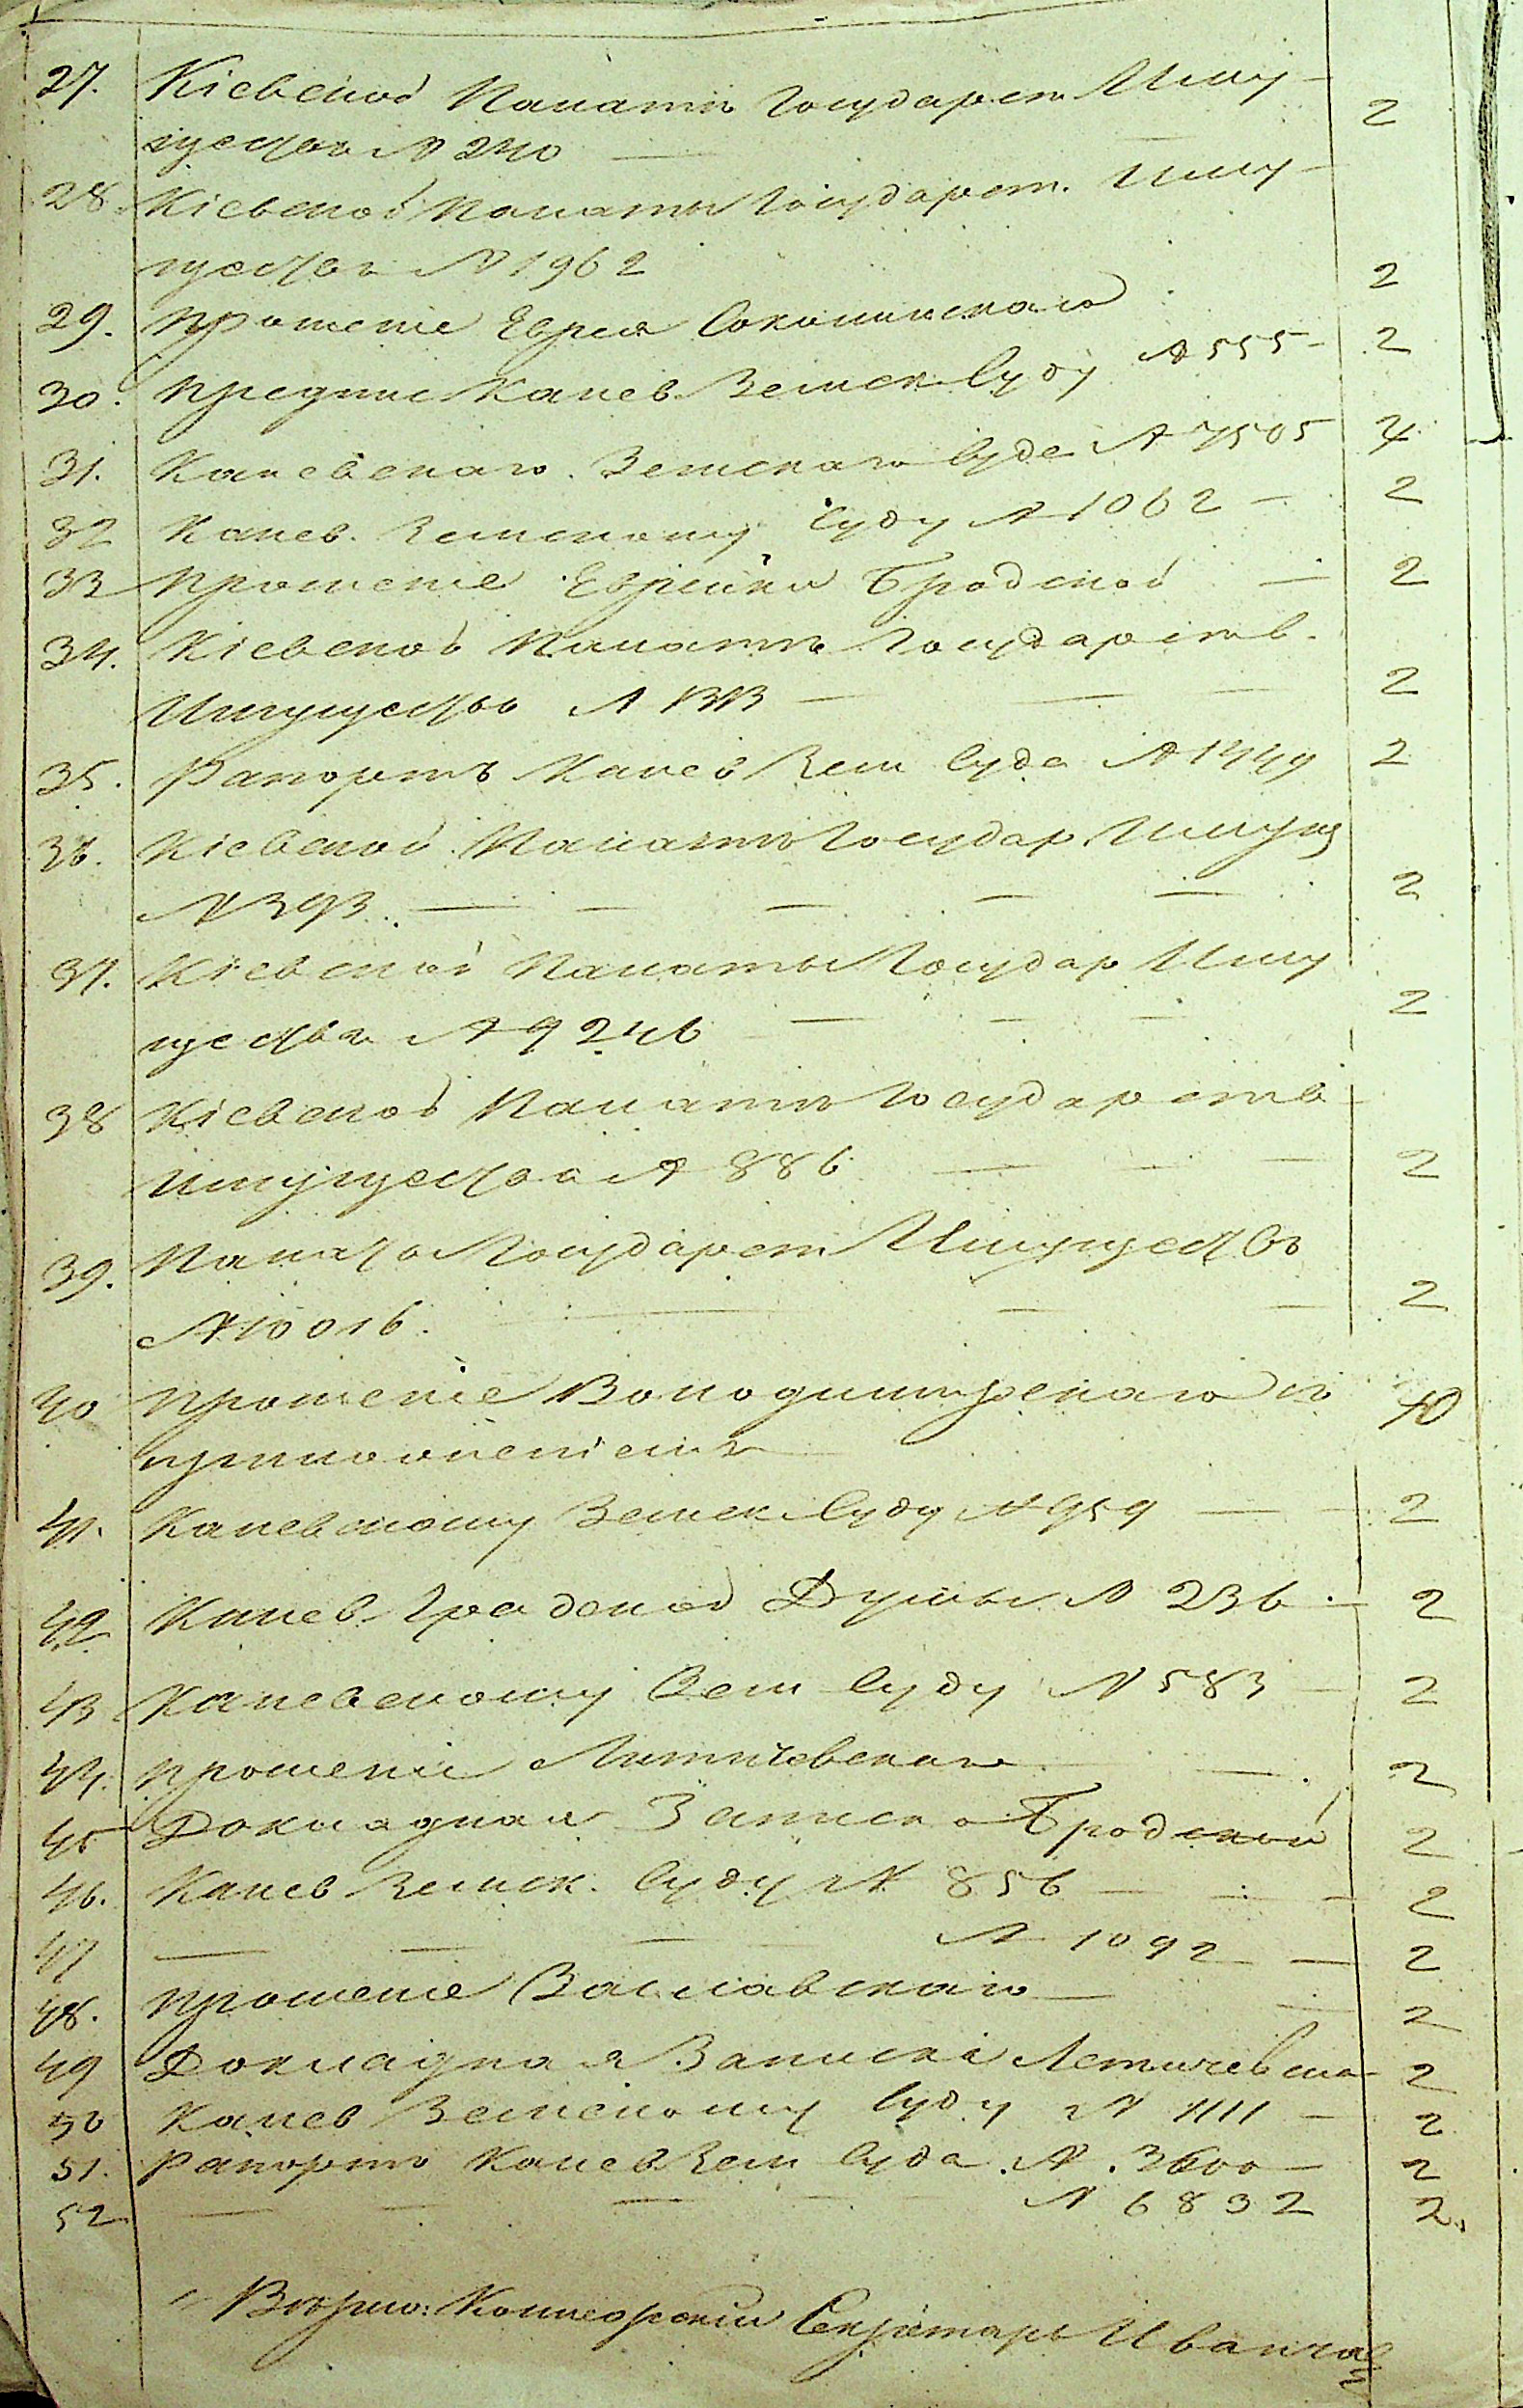 27. Кіевской Палатѣ Государст. Иму-
ществъ № 240 — 2
28. Кіевской Палаты Государст. Иму-
ществъ № 1962 2
29. Прошеніе Еврея Соколинскаго 2
30. Предпис Канев. Земск. Суду № 555 - 4
31. Каневскаго Земскаго Суда № 7505 2
32 Канев. Земскому Суду № 1062 —
33 Прошеніе Еврейки Бродской — 2
34. Кіевской Палатѣ Государств.
Имуществъ № 133 — 2
35. Рапортъ Канев Зем Суда № 1449 2
36. Кіевской Палатѣ Государ Имущ
№ 393. — — — — — 2
37. Кіевской Палаты Государ Иму
ществъ № 9246 — — — 2
38 Кіевской Палатѣ Государств
Имуществъ № 886 — — — 2
39. Палата Государст Имуществъ
№ 10016. — — — 2
40 Прошеніе Володимірскаго съ 10
приложеніемъ
41. Каневскому Земск Суду № 959 — 2
42 Канев. Градской Думы № 236. — 2
43 Каневскому Зем Суду № 583 — 2
44. Прошеніе Литичевскаго — 2
45 Докладная Записка Бродской 2
46. Канев Земск. Суду № 856 — — — 2
47 — — — № 1092 — 2
48. Прошеніе Заславскаго — — 2
49 Докладная Записка Летичевска- 2
50 Канев Земскому Суду № 1111 — 2
51. Рапортъ Канев Зем Суда № 3600 — 2
52 — — — — № 6832 2.
Вѣрно: Коллежскій Секретарь Иванчов